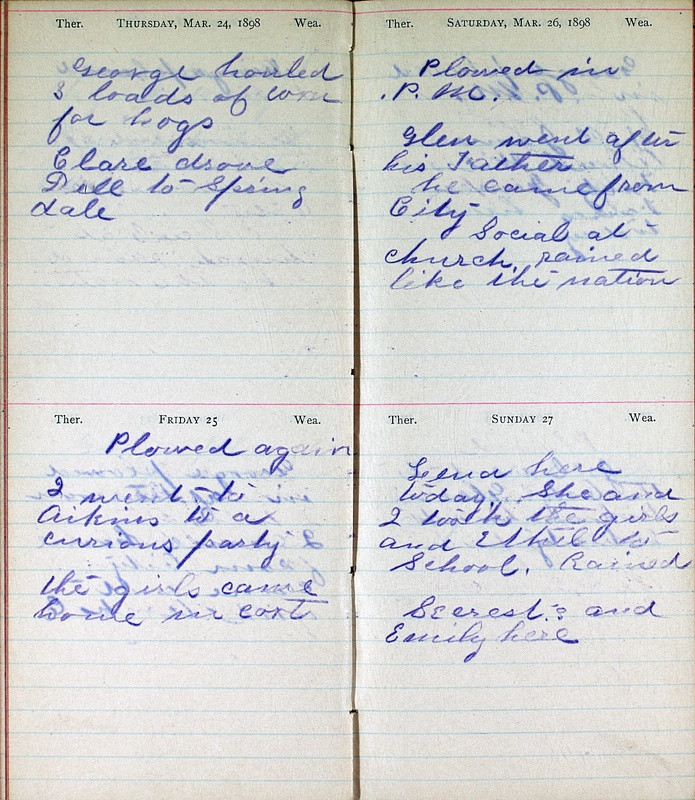 Ther. THURSDAY, MAR. 24, 1898 Wea.
George houled
3 loads of corn
for hogs
Clare drove
Dell to Spring
dale
Ther. FRIDAY 25 Wea.
Plowed again
I went to
Aikins to a
curious party
the girls came
home in cart
Ther. SATURDAY, MAR. 26, 1898 Wea.
Plowed in
P. M.
Glen went after
his Father
he came from
City
Social at
church, rained
like the nation
Ther. SUNDAY 27 Wea.
here
today. She and
I took the girls
and Ethel to
School. Rained
Secrest's and
Emily here